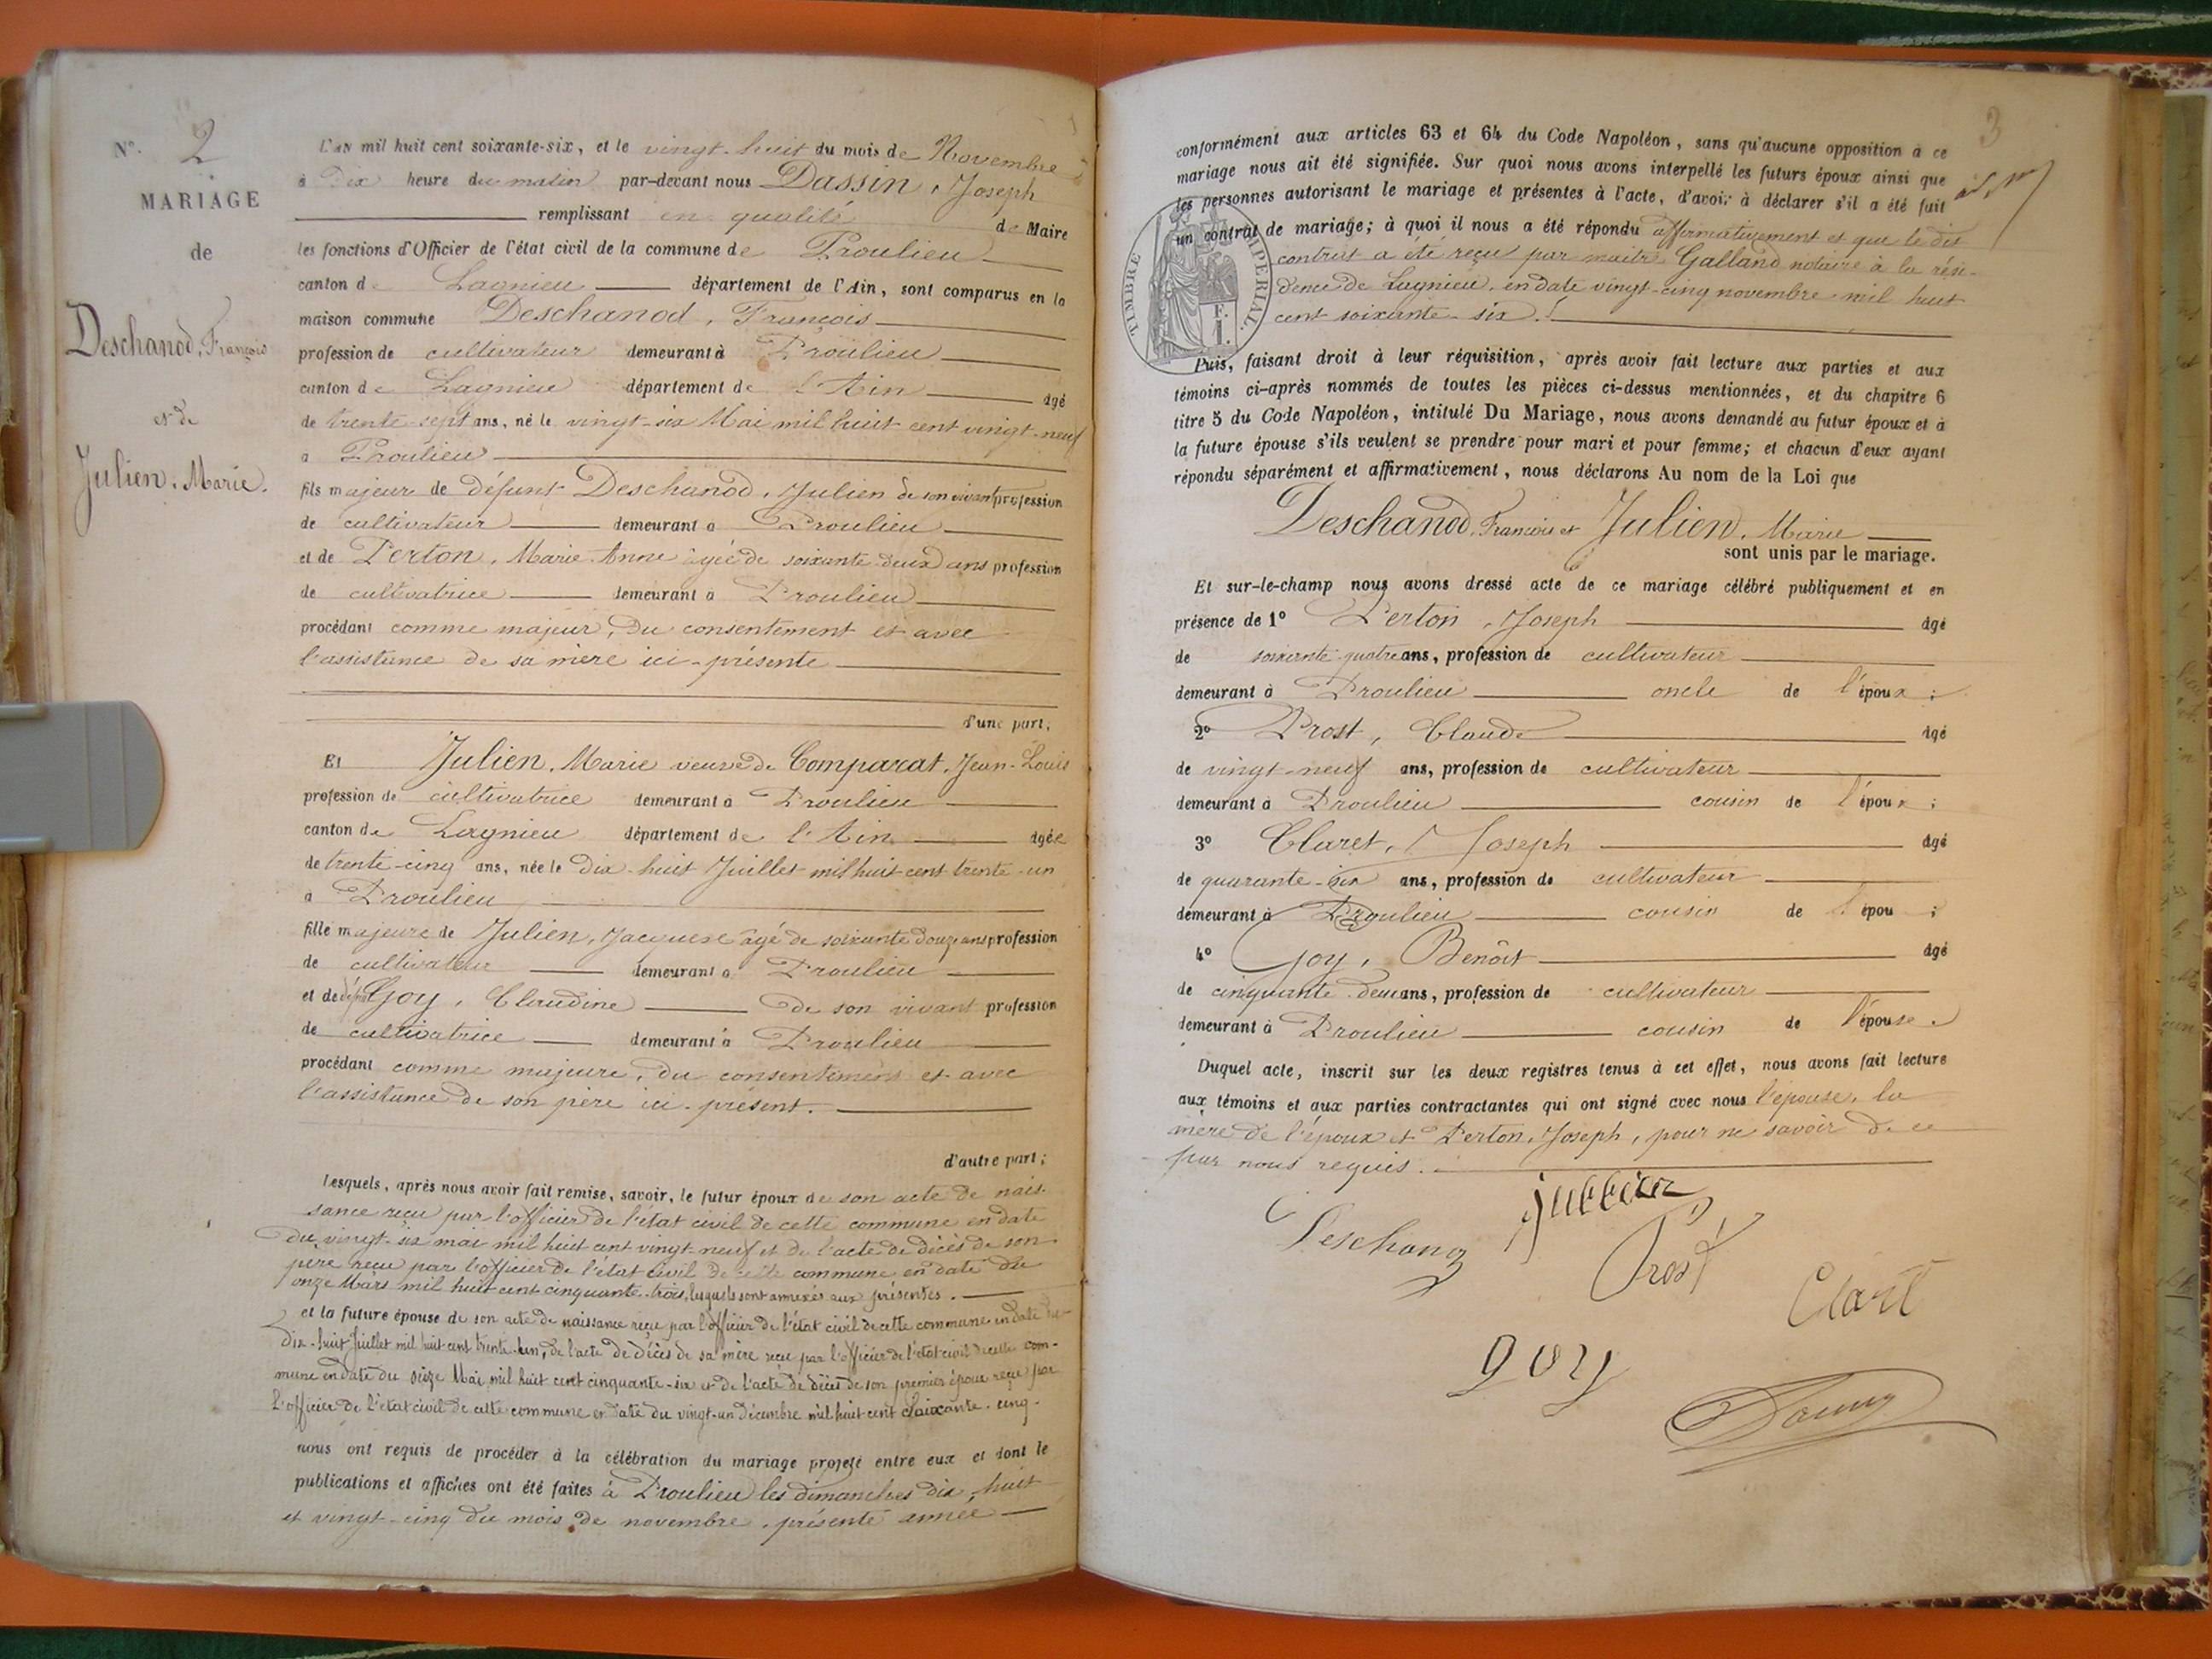 N°. 2
MARIAGE
de
Deschanod, François
et de
Julien, Marie.
L'AN mil huit cent soixante-six, et le vingt-huit du mois de Novembre
à Dix heure du matin par-devant nous Dassin, Joseph
remplissant en qualité de Maire
les fonctions d'Officier de l'état civil de la commune de Proulieu
canton de Lagnieu département de l'Ain, sont comparus en la
maison commune Deschanod, François
profession de cultivateur demeurant à Proulieu
canton de Lagnieu département de l'Ain âgé
de trente-sept ans, né le vingt-six Mai mil huit cent vingt-neuf
à Proulieu
fils majeur de défunt Deschanod, Julien de son vivant profession
de cultivateur demeurant à Proulieu
et de Perton, Marie-Anne âgée de soixante-deux ans profession
de cultivatrice demeurant à Proulieu
procédant comme majeur, du consentement et avec
l'assistance de sa mère ici-présente
d'une part;
Et Julien, Marie veuve de Comparat, Jean-Louis
profession de cultivatrice demeurant à Proulieu
canton de Lagnieu département de l'Ain âgée
de trente-cinq ans, née le Dix-huit Juillet mil huit cent trente-un
à Proulieu
fille majeure de Julien, Jacques âgé de soixante douze ans profession
de cultivateur demeurant à Proulieu
et de Goy, Claudine de son vivant profession
de cultivatrice demeurant à Proulieu
procédant comme majeure, du consentement et avec
l'assistance de son père ici-présent.
d'autre part;
Lesquels, après nous avoir fait remise, savoir, le futur époux de son acte de nais-
sance reçu par l'officier de l'état civil de cette commune en date
du vingt-six mai mil huit cent vingt-neuf et de l'acte de décès de son
père reçu par l'officier de l'état civil de cette commune en date du
onze Mars mil huit cent cinquante-trois, lesquels sont annexés aux présentes.
et la future épouse de son acte de naissance reçu par l'officier de l'état civil de cette commune en date du
Dix-huit Juillet mil huit cent trente-un, de l'acte de décès de sa mère reçu par l'officier de l'état civil de cette com-
mune en date du seize Mai mil huit cent cinquante-six et de l'acte de décès de son premier époux reçu par
l'officier de l'état civil de cette commune en date du vingt-un décembre mil huit cent soixante-cinq.
nous ont requis de procéder à la célébration du mariage projeté entre eux et dont le
publications et affiches ont été faites à Proulieu les dimanches dix-huit
et vingt-cinq du mois de novembre, présente année
3
conformément aux articles 63 et 64 du Code Napoléon, sans qu'aucune opposition à ce
mariage nous ait été signifiée. Sur quoi nous avons interpellé les futurs époux ainsi que
les personnes autorisant le mariage et présentes à l'acte, d'avoir à déclarer s'il a été fait
un contrat de mariage; à quoi il nous a été répondu affirmativement et que le dit
contrat a été reçu par maitre Galland notaire à la rési-
dence de Lagnieu, en date vingt-cinq novembre mil huit
cent soixante-six.
TIMBRE IMPERIAL.
F.
1.
Puis, faisant droit à leur réquisition, après avoir fait lecture aux parties et aux
témoins ci-après nommés de toutes les pièces ci-dessus mentionnées, et du chapitre 6
titre 5 du Code Napoléon, intitulé Du Mariage, nous avons demandé au futur époux et à
la future épouse s'ils veulent se prendre pour mari et pour femme; et chacun d'eux ayant
répondu séparément et affirmativement, nous déclarons Au nom de la Loi que
Deschanod, François et Julien, Marie
sont unis par le mariage.
Et sur-le-champ nous avons dressé acte de ce mariage célébré publiquement et en
présence de 1° Perton, Joseph âgé
de soixante-quatre ans, profession de cultivateur
demeurant à Proulieu oncle de l'époux;
2° Prost, Claude âgé
de vingt-neuf ans, profession de cultivateur
demeurant à Proulieu cousin de l'époux;
3° Claret, Joseph âgé
de quarante-six ans, profession de cultivateur
demeurant à Proulieu cousin de l'épou ;
4° Goy, Benoît âgé
de cinquante-deux ans, profession de cultivateur
demeurant à Proulieu cousin de l'épouse.
Duquel acte, inscrit sur les deux registres tenus à cet effet, nous avons fait lecture
aux témoins et aux parties contractantes qui ont signé avec nous l'épouse, la
mère de l'époux et Perton, Joseph, pour ne savoir de ce
par nous requis.
jullien
Deschano
Prost
Claret
goy